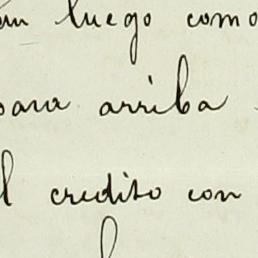 luego como
para arriba
l credito con